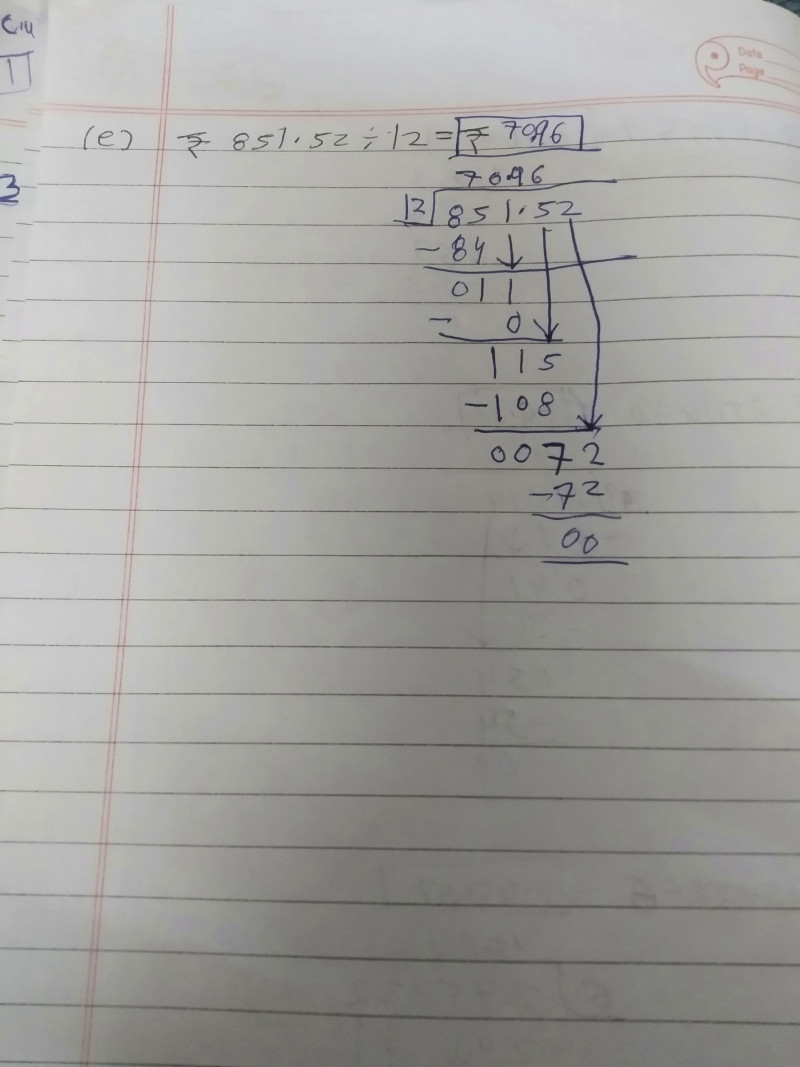 Date
Page
1
3
(e) ₹ 851.52 ÷ 12 = ₹ 70.96
70.96
12 851.52
- 84
011
- 0
115
-108
0072
-72
00